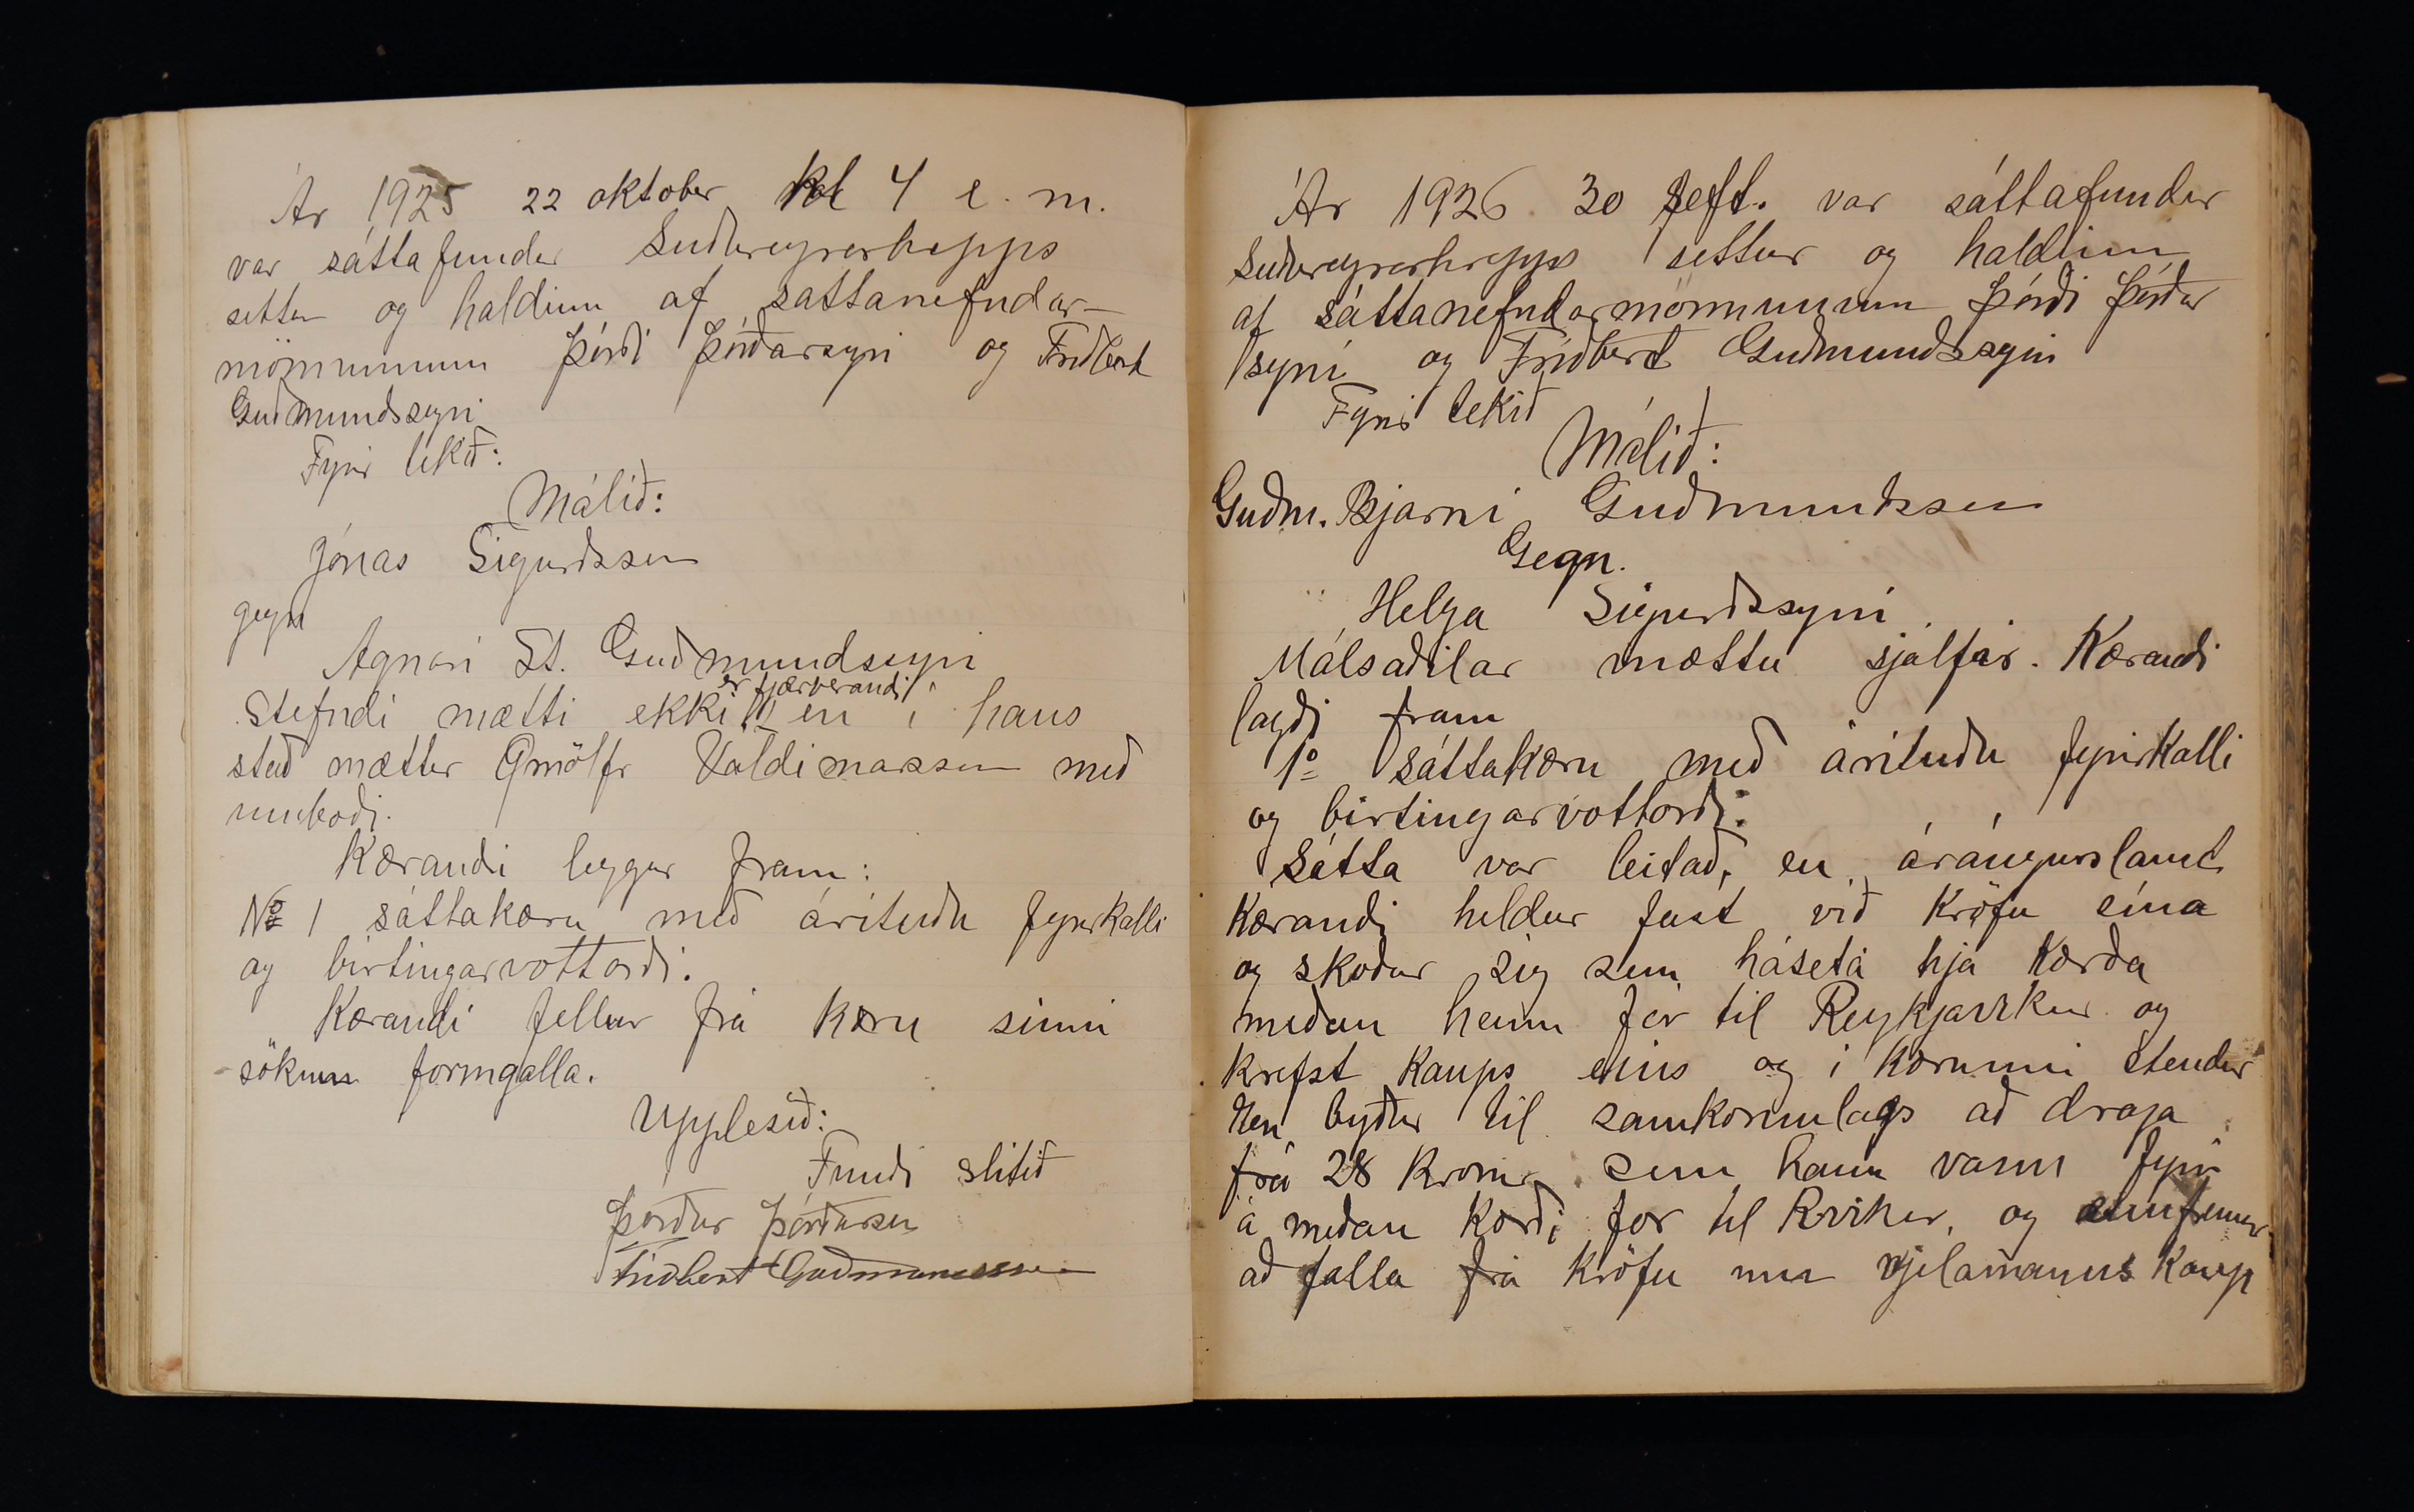 Ár 1925 22 oktober Kl 4 e. m.
var sáttafundur Suðureyrarhepps
settur og haldinn af sattanefndar-
mönnunum Þórði Þórðarsyni og Friðbert
Guðmundssyni
Fyrir tekið:
Málið:
Jónas Sigurðsson
gegn
Agnari St. Guðmundssyni
er fjærverandi
Stefndi mætti ekki en í hans
stað mættur Örnólfr Valdimarsson með
umboði.
Kærandi leggur fram:
No 1 sáttakæru með árituðu fyrirkalli
og birtingarvottorði.
Kærandi fellur frá kæru sinni
sökum formgalla.
Upplesið:
Fundi slitið
Þórður Þórðarson
Friðbert Guðmundsson
Ár 1926 30 Sept. var sáttafundur
Suðureyrarhrepps settur og haldinn
af sáttanefndarmönnunum Þórði Þórðar
syni og Friðbert Guðmundssyni
Fyrir tekið
Málið:
Guðm. Bjarni Guðmundsson
Gegn.
Helga Sigurðssyni
Málsaðilar mættu sjálfir. Kærandi
lagði fram
1o sáttakæru með árituðu fyrirkalli
og birtingarvottorði.
Sátta var leitað, en árángurslaust
Kærandi heldur fast við kröfu sína
og skoðar sig sem háseta hjá kærða
meðan hann fór til Reykjavíkur og
krefst kaups eins og í kærunni stendur
en byður til samkomulags að draga
frá 28 kronur sem hann vann fyrir
á meðan kærði for til Rvikur, og ennfremur
að falla frá kröfu um vjelamanns kaup